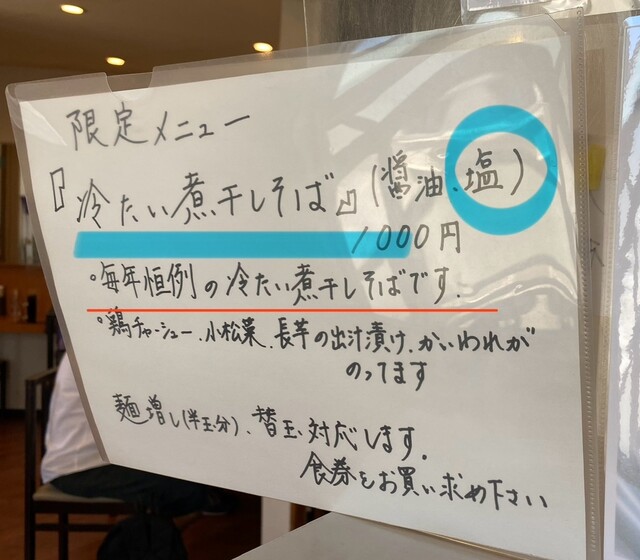 限定メニュー
『冷たい煮干しそば』(醤油、塩)
1000円
°毎年恒例の冷たい煮干しそばです.
°鶏チャーシュー、小松菜、長芋の出汁漬け、かいわれが
のってます
麺増し(半玉分)、替玉対応します.
食券をお買い求め下さい